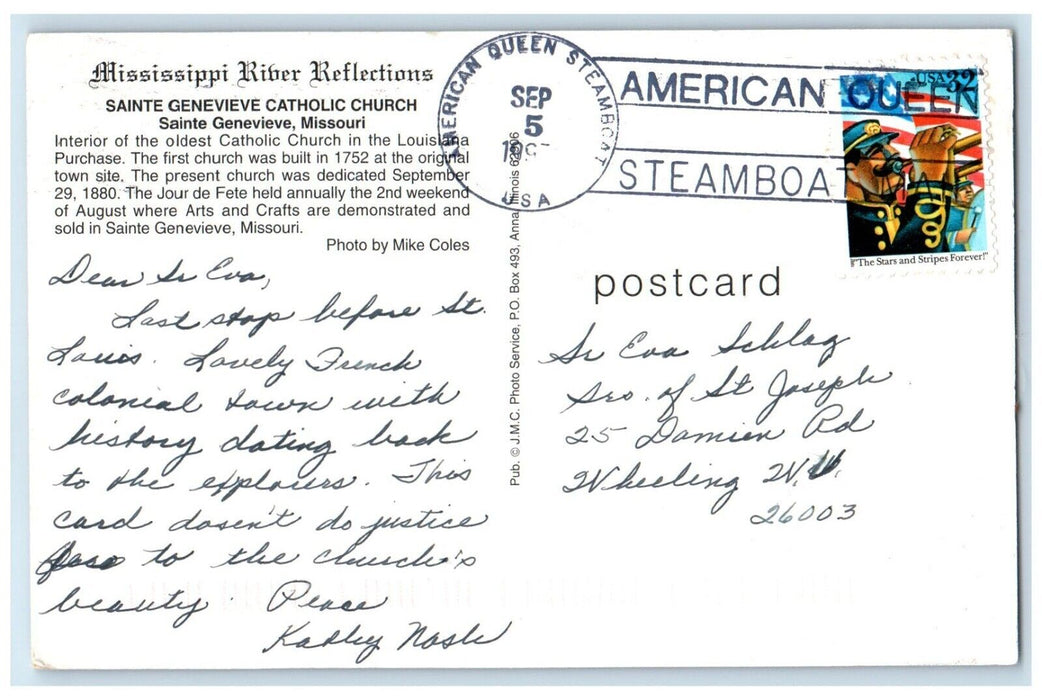 Mississippi River Reflections
SAINTE GENEVIEVE CATHOLIC CHURCH
Sainte Genevieve, Missouri
Interior of the oldest Catholic Church in the Louisiana
Purchase. The first church was built in 1752 at the original
town site. The present church was dedicated September
29, 1880. The Jour de Fete held annually the 2nd weekend
of August where Arts and Crafts are demonstrated and
sold in Sainte Genevieve, Missouri.
Photo by Mike Coles
Dear Sr Eva,
Last stop before St.
Louis. Lovely French
colonial town with
history dating back
to the explorers. This
card dosen't do justice
to the church's
beauty. Peace
Kathy Nash
Pub. © J.M.C. Photo Service, P.O. Box 493, Anna, Illinois
AMERICAN QUEEN STEAMBOAT
SEP
5
USA
AMERICAN QUEEN
STEAMBOAT
USA 32
"The Stars and Stripes Forever!"
postcard
Sr Eva Schlag
Srs. of St Joseph
25 Damien Rd
Wheeling W.V.
26003